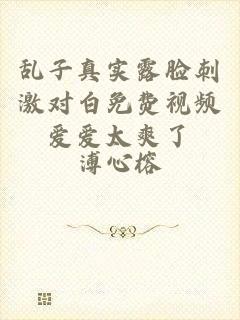 乱子真实露脸刺
激对白免费视频
爱爱太爽了
溥心榕